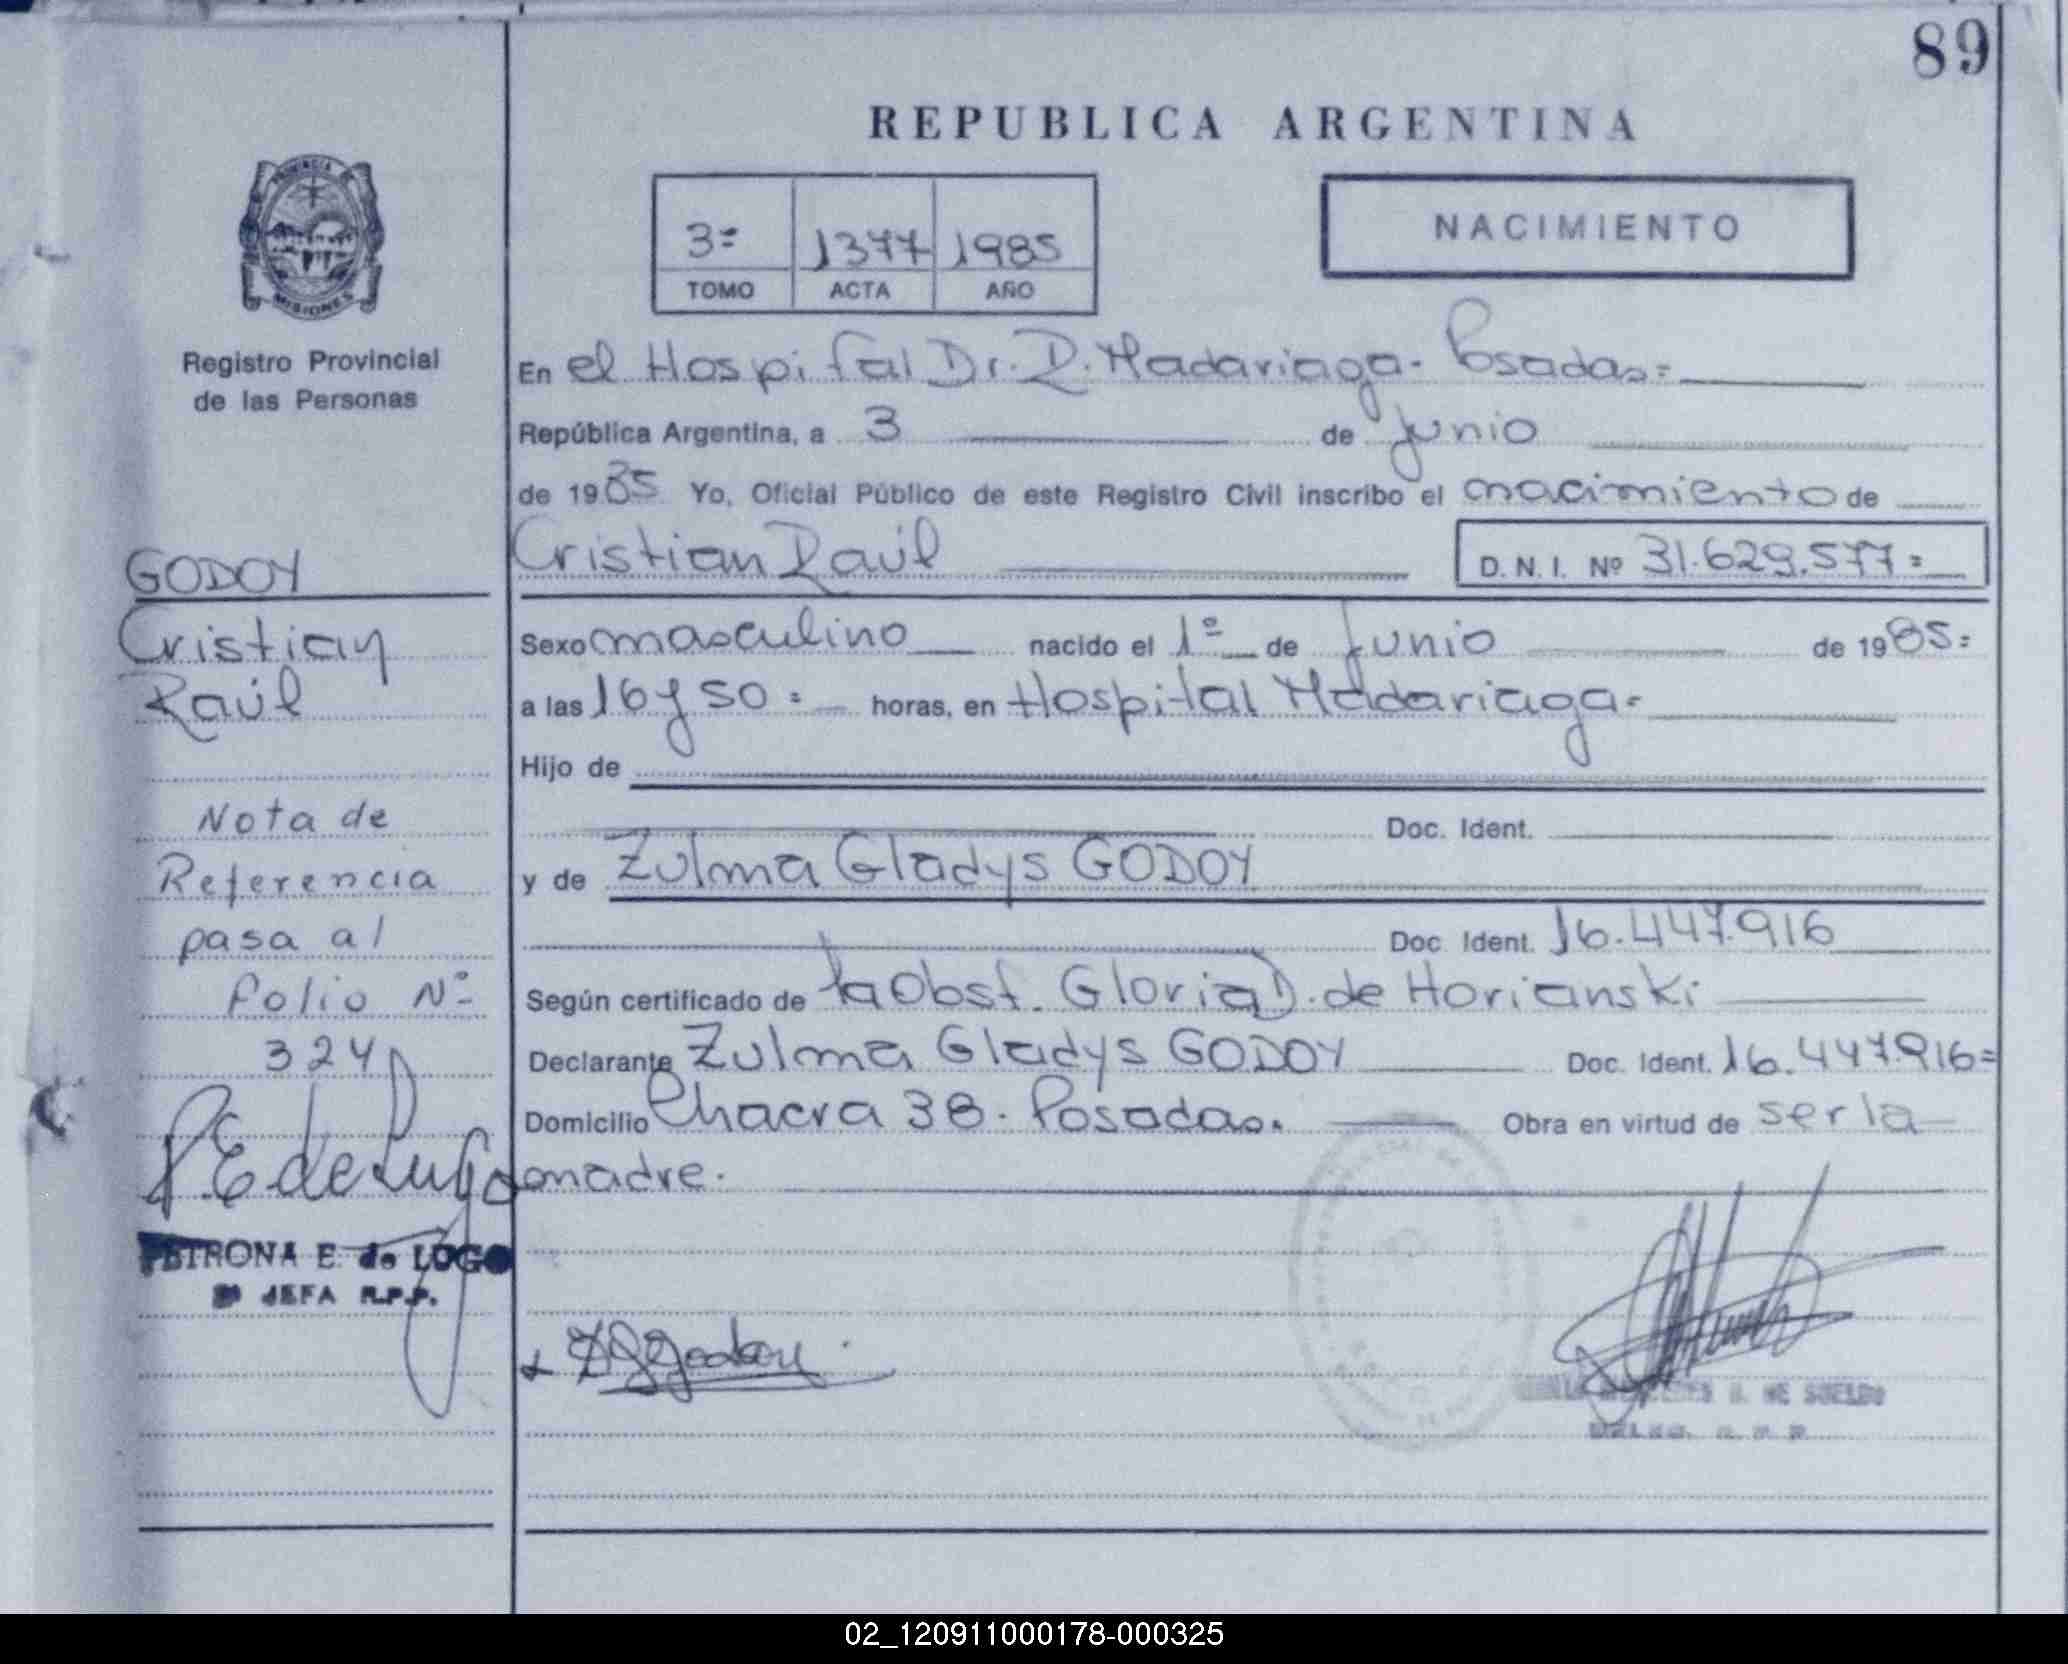 89
REPUBLICA ARGENTINA
PROVINCIA
MISIONES
Registro Provincial
de las Personas
3º 1377 1985
TOMO ACTA AÑO
NACIMIENTO
En el Hospital Dr. R. Madariaga - Posadas =
República Argentina, a 3 de Junio
de 1985 Yo, Oficial Público de este Registro Civil inscribo el nacimiento de
Cristian Raúl D.N.I. Nº 31.629.577 =
Sexo masculino nacido el 1º de Junio de 1985 =
a las 16 y 50 = horas, en Hospital Madariaga -
Hijo de
Doc. Ident.
y de Zulma Gladys GODOY
Doc. Ident. 16.447.916
Según certificado de la Obst. Gloria D. de Horianski
Declarante Zulma Gladys GODOY Doc. Ident. 16.447.916 =
Domicilio Chacra 38 - Posadas. Obra en virtud de ser la
madre.
GODOY
Cristian
Raúl
Nota de
Referencia
pasa al
folio Nº
324
P.E de Lugo
PETRONA E. de LUGO
JEFA R.P.P.
ZGGodoy
DE SUELDO
02_120911000178-000325